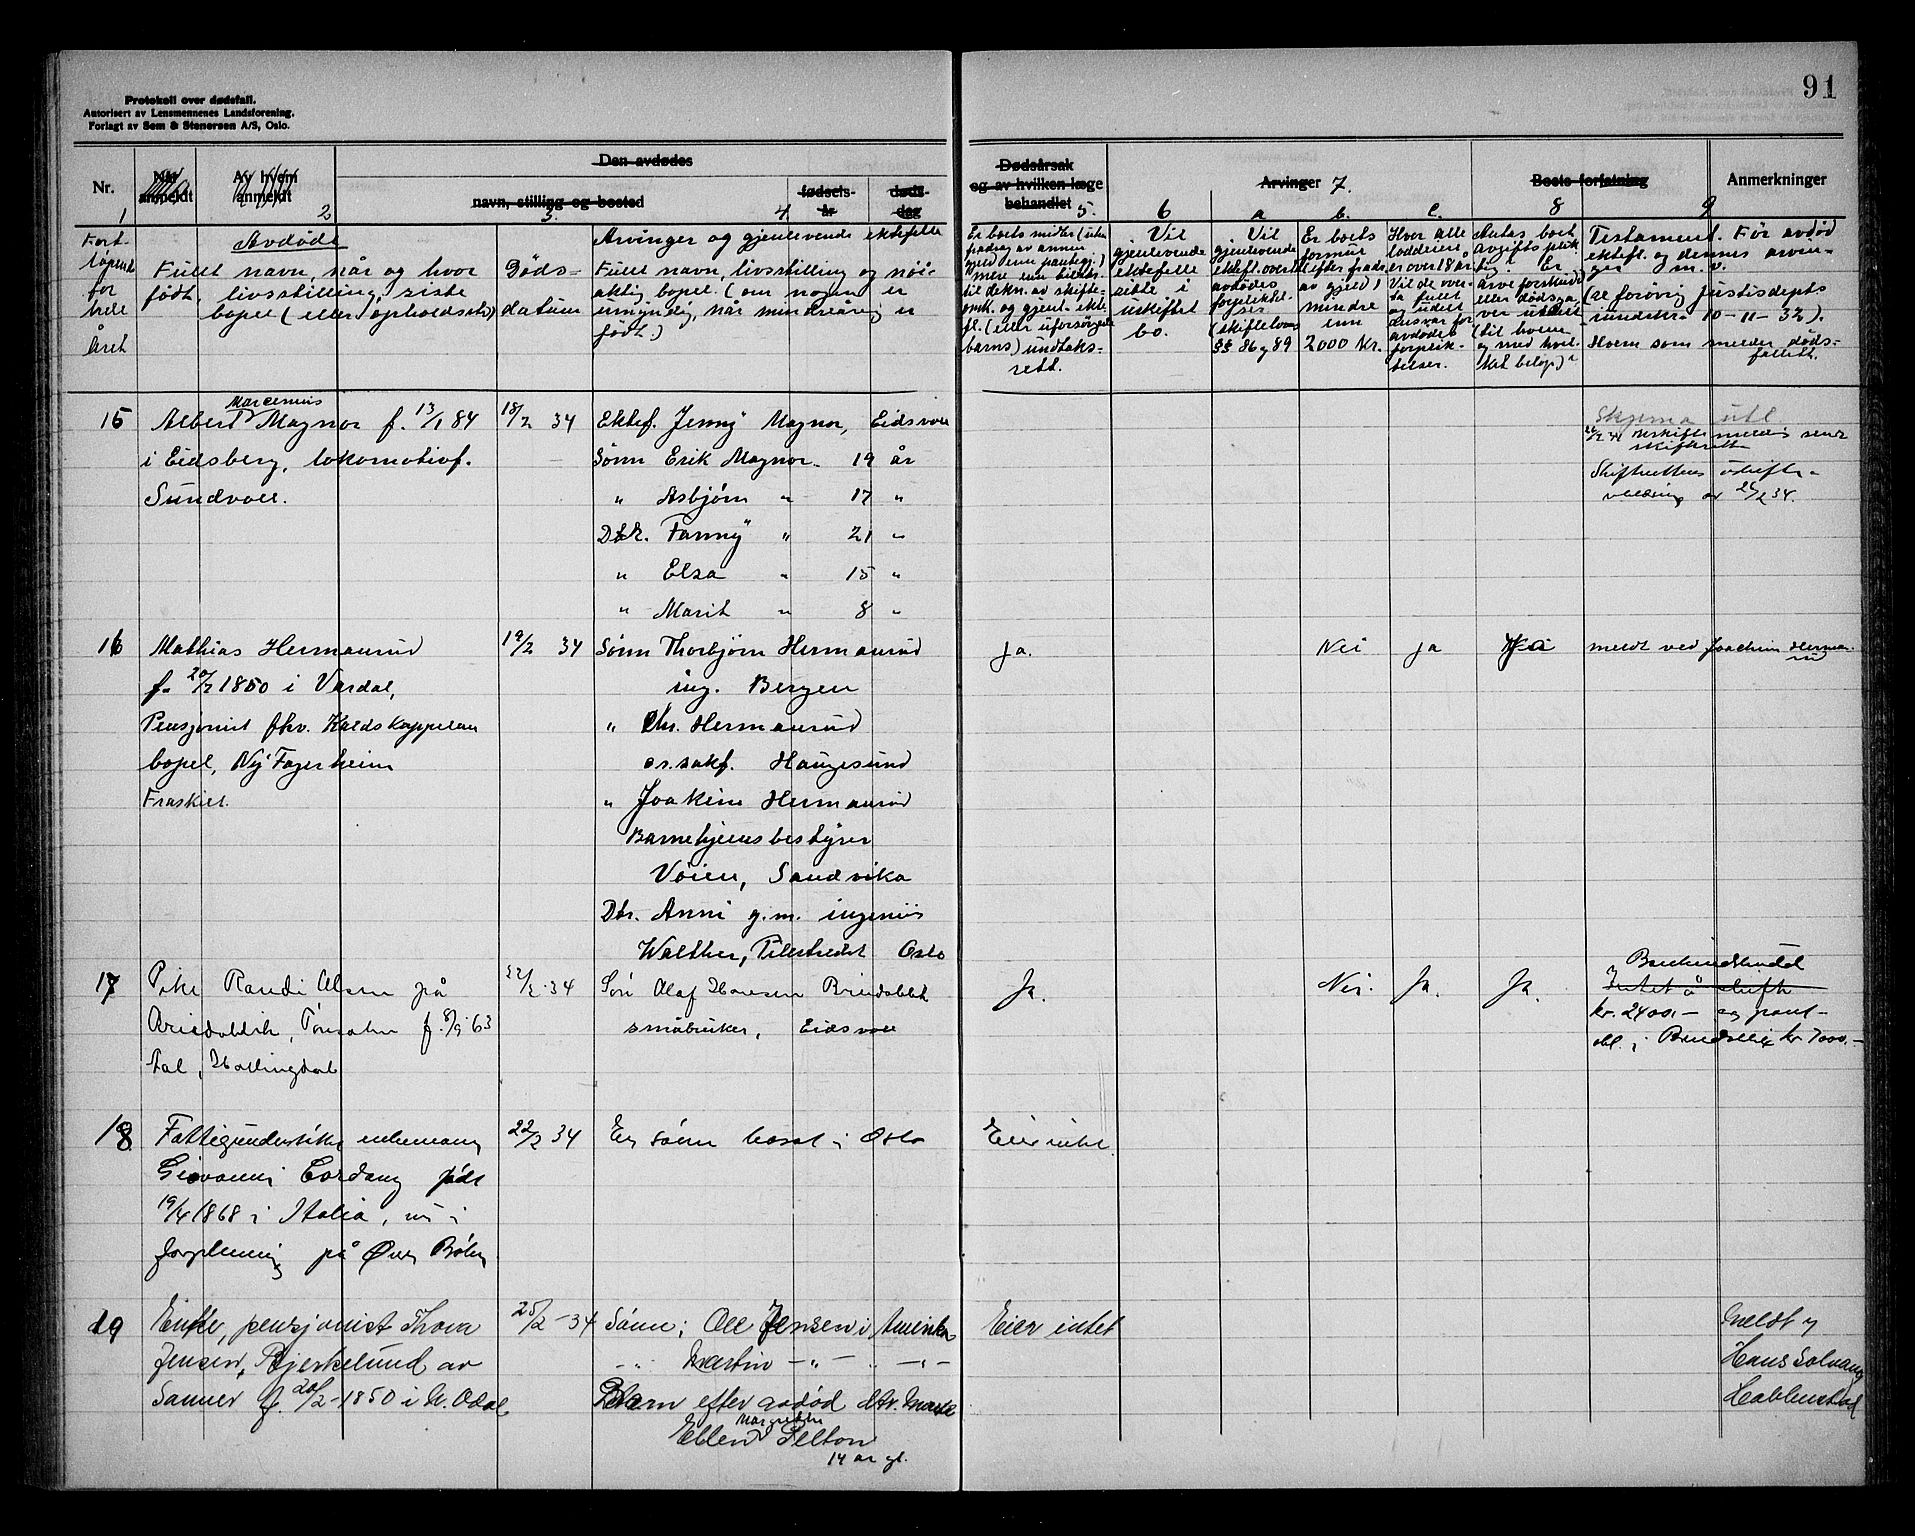 91
Protokoll over dødsfall.
Autorisert av Lensmennenes Landsforening.
Forlagt av Sem & Stenersen A/S, Oslo.
Nr.
1
Når anmeldt
Av hvem anmeldt
2
Den avdødes
navn, stilling og bosted
3.
fødsels-
år
4.
døds-
dag
Dødsårsak
og av hvilken læge
behandlet
5.
6
Arvinger 7.
a
b.
c.
Boets forfatning
8
9
Anmerkninger
Fort-
løpende
for
hele
året
Avdøde
Fullt navn, når og hvor
født, livsstilling, siste
bopel (eller opholdssted)
Døds-
datum
Arvinger og gjenlevende ektefelle
Fullt navn, livsstilling og nøi-
aktig bopel. (om nogen er
umyndig, når mindreårig er
født.)
Er boets midler (uten
fradrag av annen
gjeld enn pantegj.)
mere enn
til dekn. av skifte-
omk. og gjenl. ekte-
f. (eller uforsørgede
barns) undtaks-
rett.
Vil
gjenlevende
ektefelle
sitte i
uskiftet
bo.
Vil
gjenlevende
ektef. overta
avdødes
forpliktel-
ser
(skifteloven
§§ 86 og 89
Er boets
formue
efter fradr.
av gjeld
mindre
enn
2000 kr.
Hver alle
loddeiere
er over 18 år
Vil de over-
ta fullt
og udelt
ansvar for
avdødes
forplik-
telser.
Antas boet
avgiftsplik-
tig? Er
arveforskudd
eller dødsga-
ver utdelt
(til hvem
og med hvil-
ket beløp)?
Testament. Før avdød
ektef. og dennes arvin-
ger m. v.
(se forøvrig Justisdepts
rundskr. 10-11-32).
Hvem som melder døds-
fallet.
15
Marcenius
Albert Magnor f. 13/1 84
i Eidsberg, lokomotivf.
Sundvoll.
18/2 34
Ektef. Jenny Magnor, Eidsvoll
Sønn Erik Magnor 19 år
" Asbjørn " 17 "
Dtr. Fanny " 21 "
" Elsa " 15 "
" Marit " 8 "
Skjema utl
Skifterettens uskifte-
24/2 34.
16
Mathias Hermanrud
f. 20/7 1850 i Vardal,
Pensjonist fhv.
bopel, Ny Fagerheim
Fraskilt.
19/2 34
Sønn Thorbjørn Hermanrud
ing. Bergen
" Chr. Hermanrud
o.r.sakf. Haugesund
" Joakim Hermanrud
Barnehjemsbestyrer
Vøien, Sandvika
Dtr. Anni g.m. ingeniør
Walther, Pilestredet Oslo
ja.
Nei
ja
meldt ved Joachim Herman-
rud
17
Pike Randi Olsen på
f. 8/9 63
Aal, Hallingdal
22/2 34
Søn Olaf Hansen
småbruker, Eidsvoll
Ja.
Nei.
Ja.
Ja.
Intet å skifte
kr. 2400.- og pant-
obl. i kr 7000.-
18
Giovanni født
19/4 1868 i Italia, nu i
forpleining på Øvre
22/2 34
En sønn bosat i Oslo
Eier intet
19
Enke, pensjonist Thora
Jensen, Bjerkelund av
Sanner f. 20/2-1850 i N. Odal
25/2-34
Sønn: Ole Jensen i Amerika
- " - Martin - " - - " -
Barn efter avdød dtr.
Margrethe
Ellen Pelton
14 år gl.
Eier intet
Meldt av
Hans Solvang